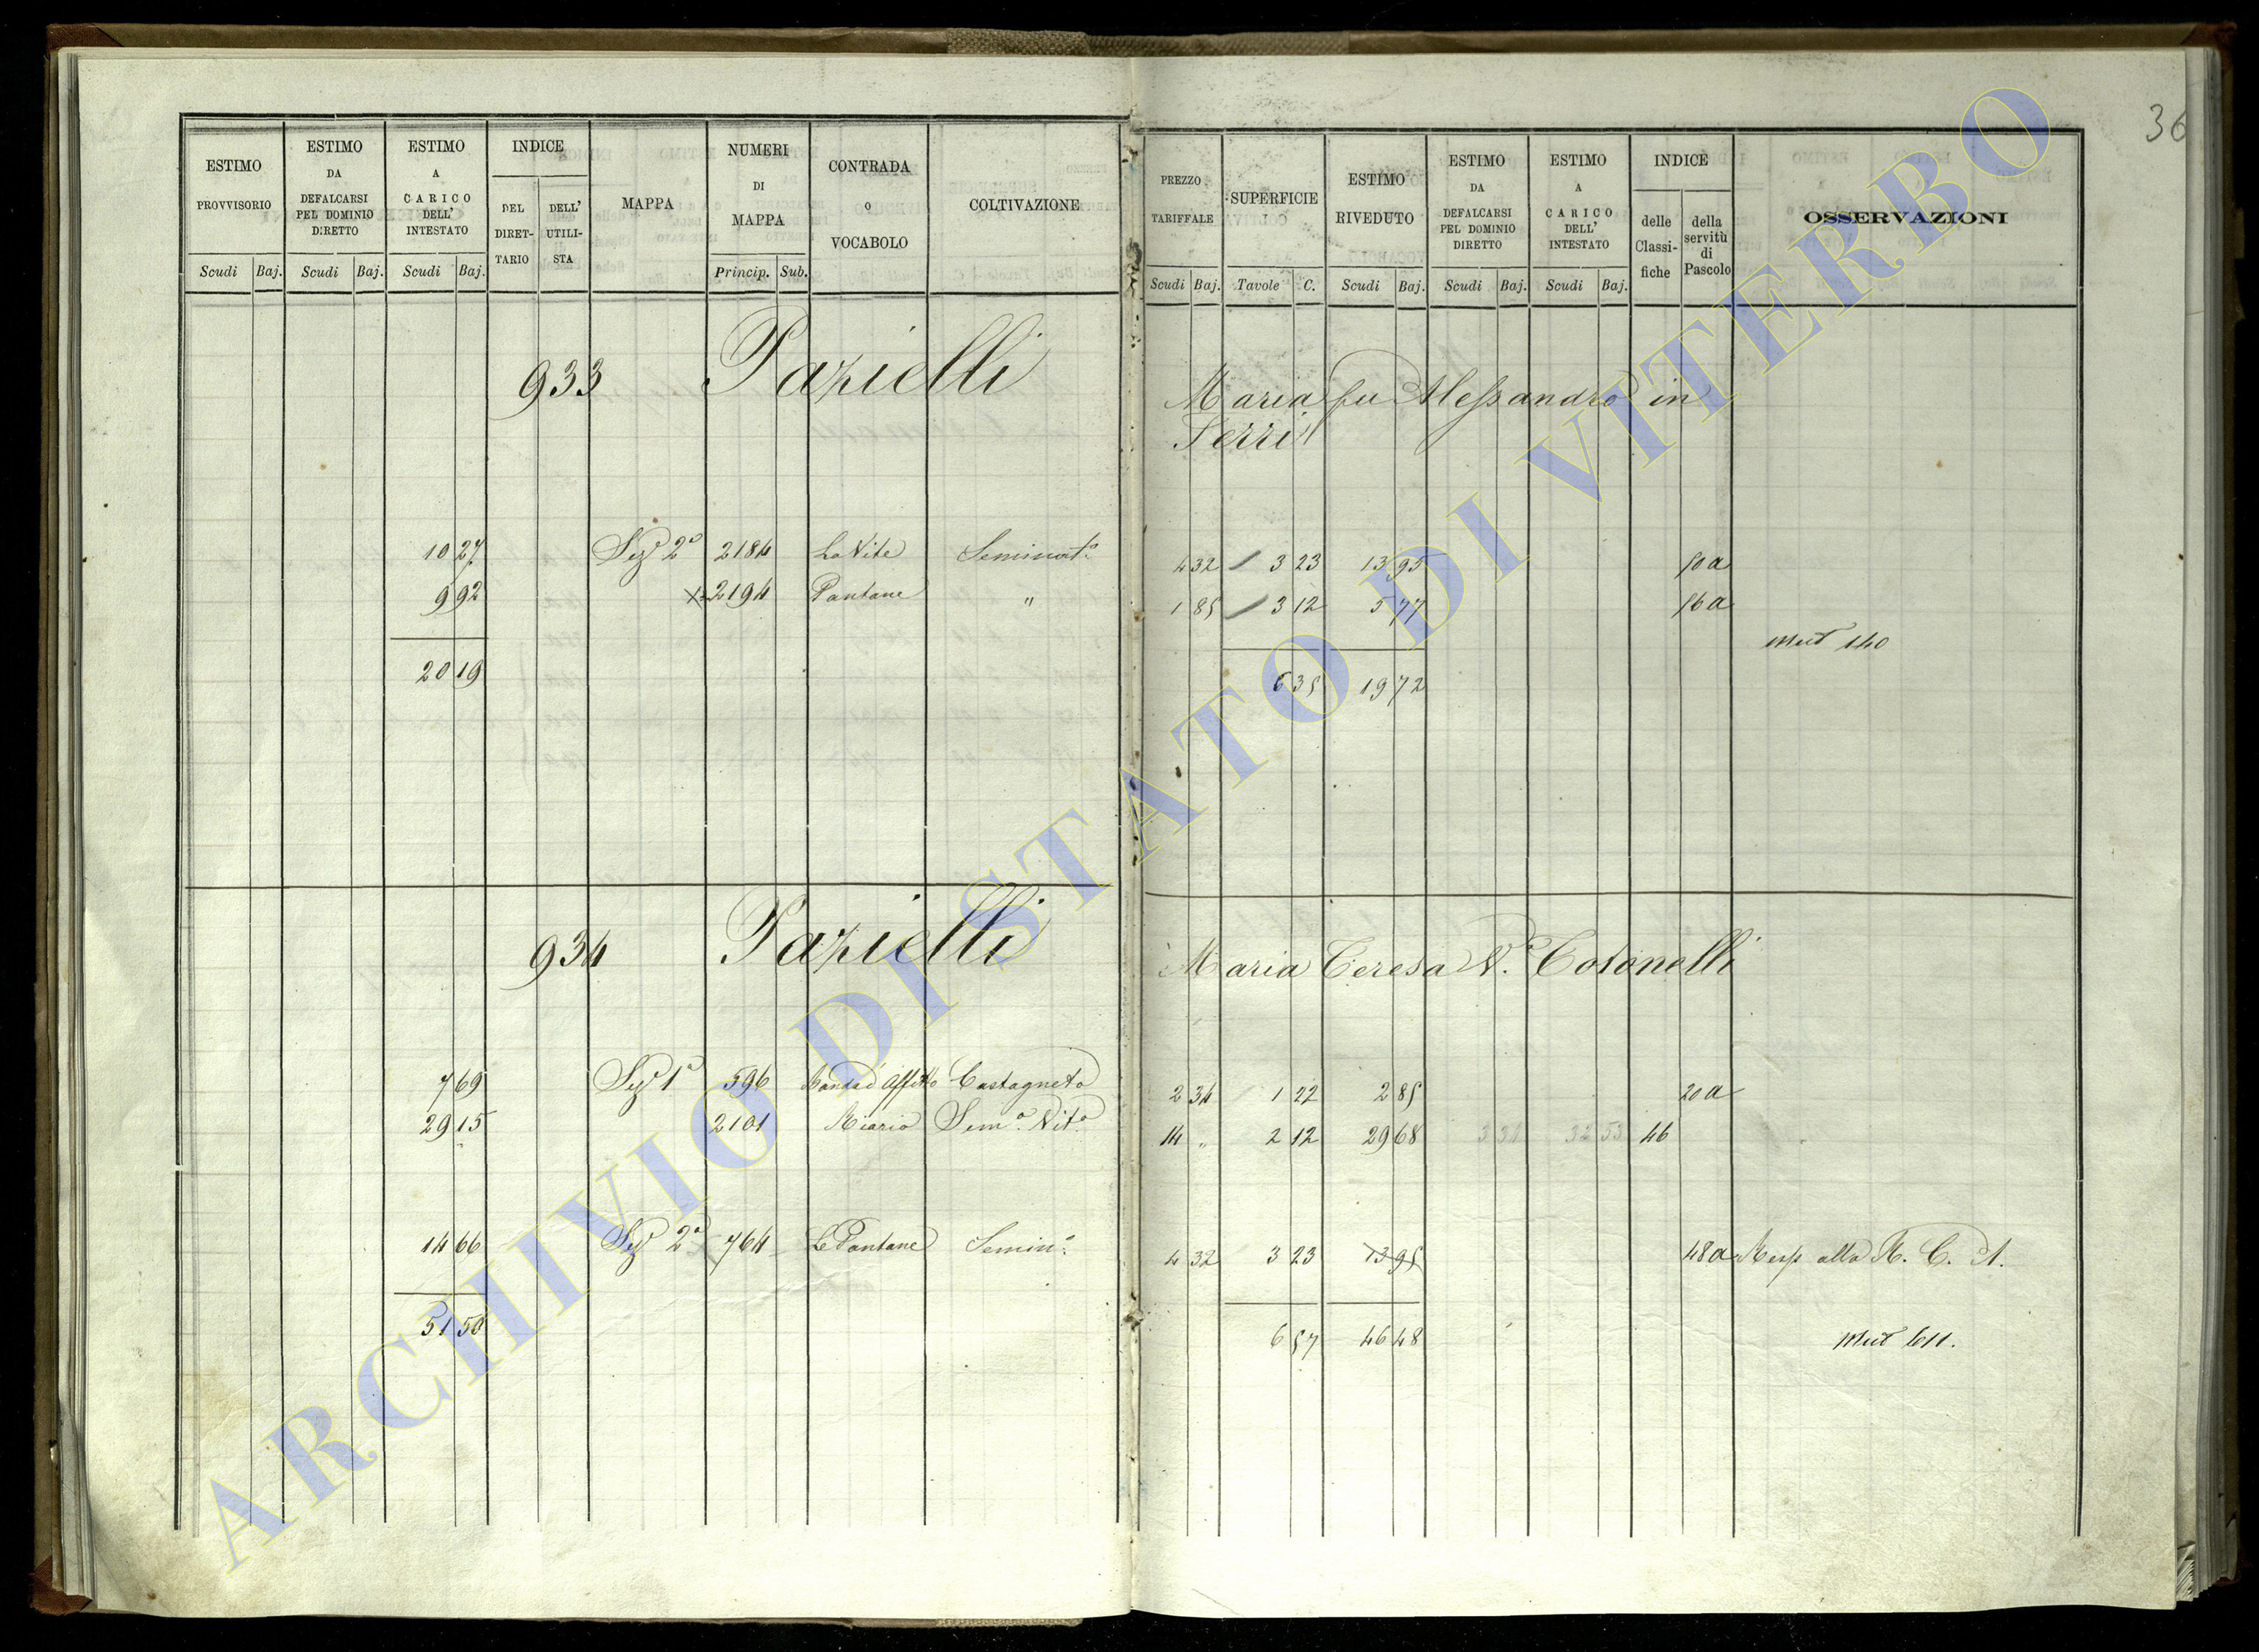 36
ESTIMO PROVVISORIO
ESTIMO DA DEFALCARSI PEL DOMINIO DIRETTO
ESTIMO A CARICO DELL' INTESTATO
INDICE
DEL DIRET-TARIO
DELL' UTILI-STA
MAPPA
NUMERI DI MAPPA
CONTRADA O VOCABOLO
COLTIVAZIONE
Scudi Baj. Scudi Baj. Scudi Baj. Princip. Sub.
PREZZO TARIFFALE
SUPERFICIE
ESTIMO RIVEDUTO
ESTIMO DA DEFALCARSI PEL DOMINIO DIRETTO
ESTIMO A CARICO DELL' INTESTATO
INDICE
delle Classi-fiche
della servitù di Pascolo
OSSERVAZIONI
Scudi Baj. Tavole C. Scudi Baj. Scudi Baj. Scudi Baj.
933 Pazielli Maria fu Alessandro in
Serri
10 27 Sez.e 2a 2184 La Vite Seminato 4 32 3 23 13 95 50a
9 92 2194 Pantane " 1 85 3 12 5 77 56a
Mut 140
20 19 6 35 19 72
934 Pazielli Maria Teresa Va. Colonelli
7 69 Sez.e 1a 596 Castagneto 2 34 1 22 2 85 20a
29 15 2101 Riario Sem.o Vit.o 14 " 2 12 29 68 3 31 32 53 46
14 66 Sez.e 2a 764 Le Pantane Semin.o 4 32 3 23 13 95 48a alla R. C. A.
51 50 6 57 46 48 Mut 611.
ARCHIVIO DI STATO DI VITERBO